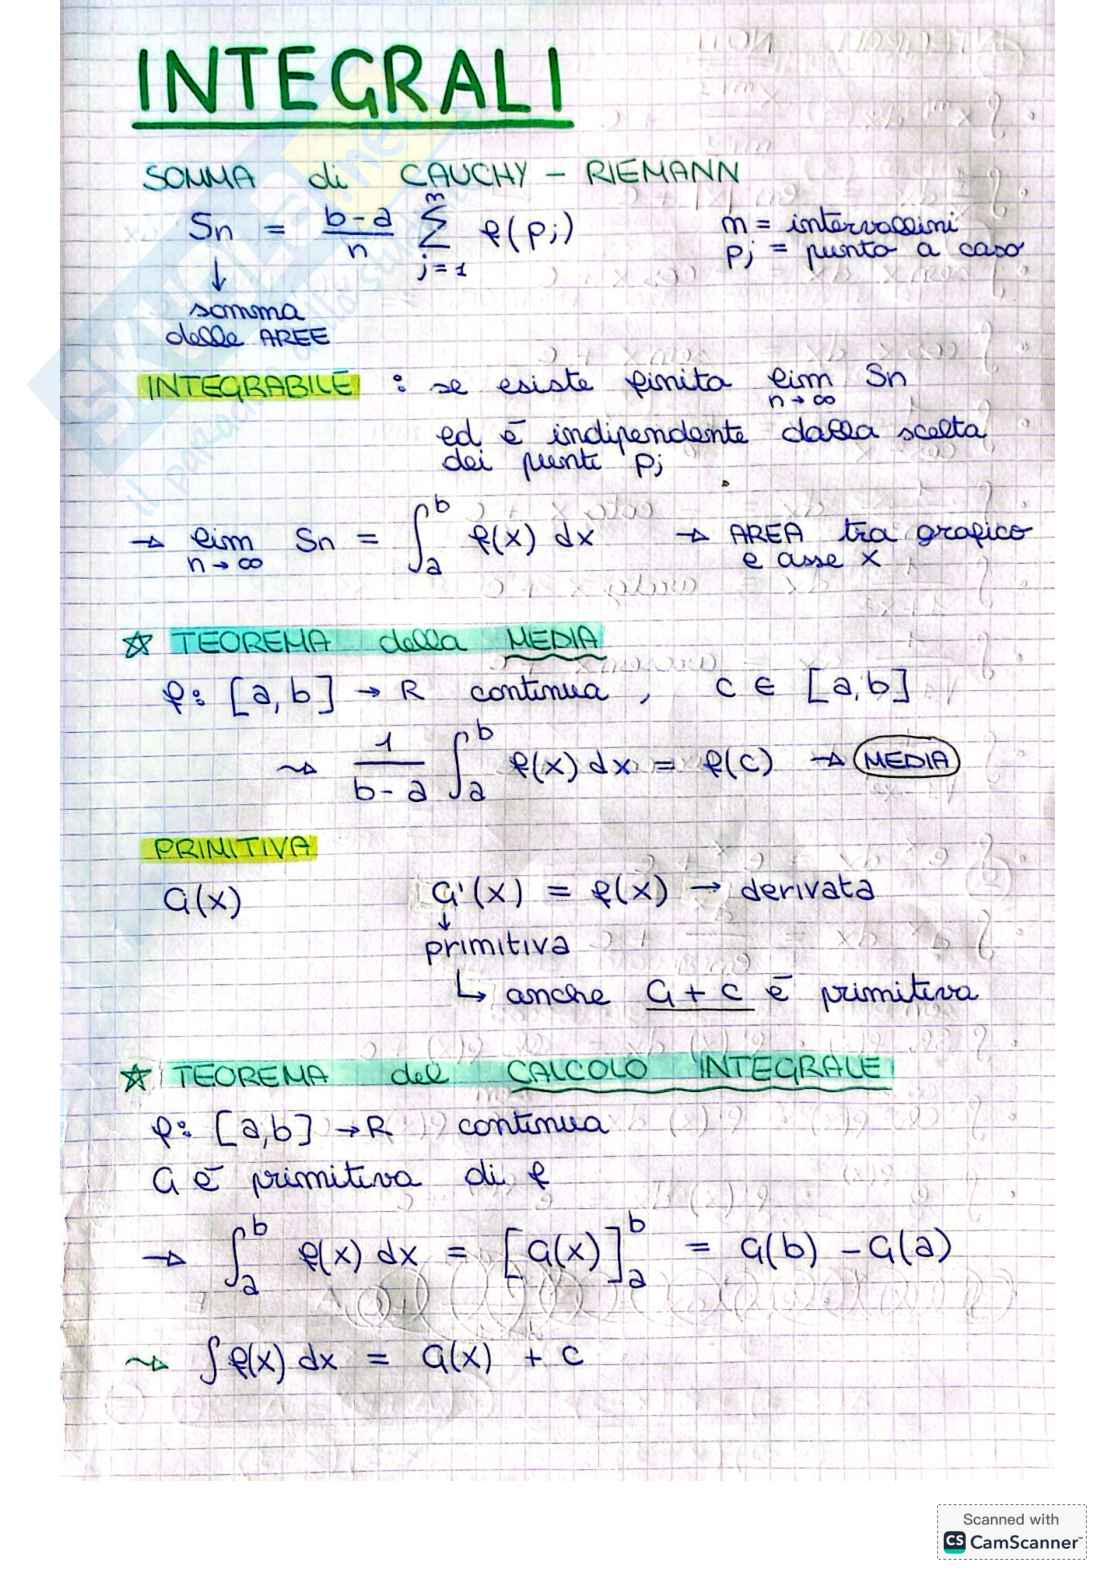 INTEGRALI
SOMMA di CAUCHY - RIEMANN
Sn = b-a/n m∑j=1 f(pj)    m = intervallini
pj = punto a caso
↓
somma
delle AREE
INTEGRABILE : se esiste finita lim n→∞ Sn
ed è indipendente dalla scelta
dei punti pj
→ lim n→∞ Sn = ∫ₐᵇ f(x) dx → AREA tra grafico
e asse x
☆ TEOREMA della MEDIA
f: [a,b] → R continua , c ∈ [a,b]
⇝ 1/b-a ∫ₐᵇ f(x) dx = f(c) → MEDIA
PRIMITIVA
G(x)    G'(x) = f(x) → derivata
↓
primitiva
↳ anche G + c è primitiva
☆ TEOREMA del CALCOLO INTEGRALE
f: [a,b] → R continua
G è primitiva di f
→ ∫ₐᵇ f(x) dx = [G(x)]ₐᵇ = G(b) - G(a)
⇝ ∫ f(x) dx = G(x) + c
Scanned with
CS CamScanner